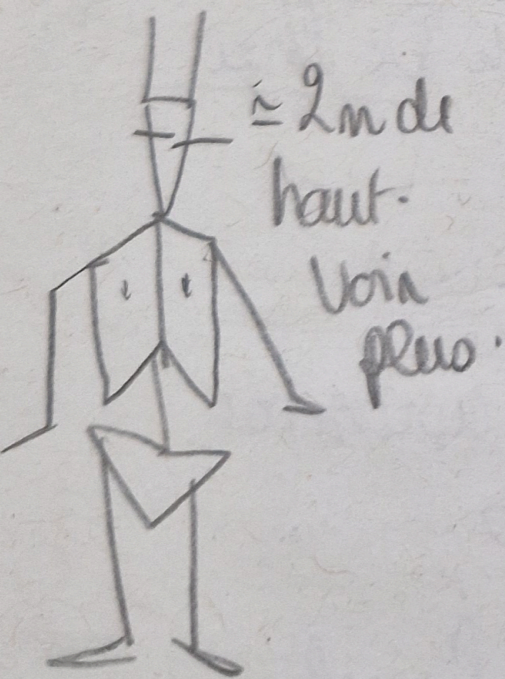 ≃ 2m de
haut.
Voir
plus.